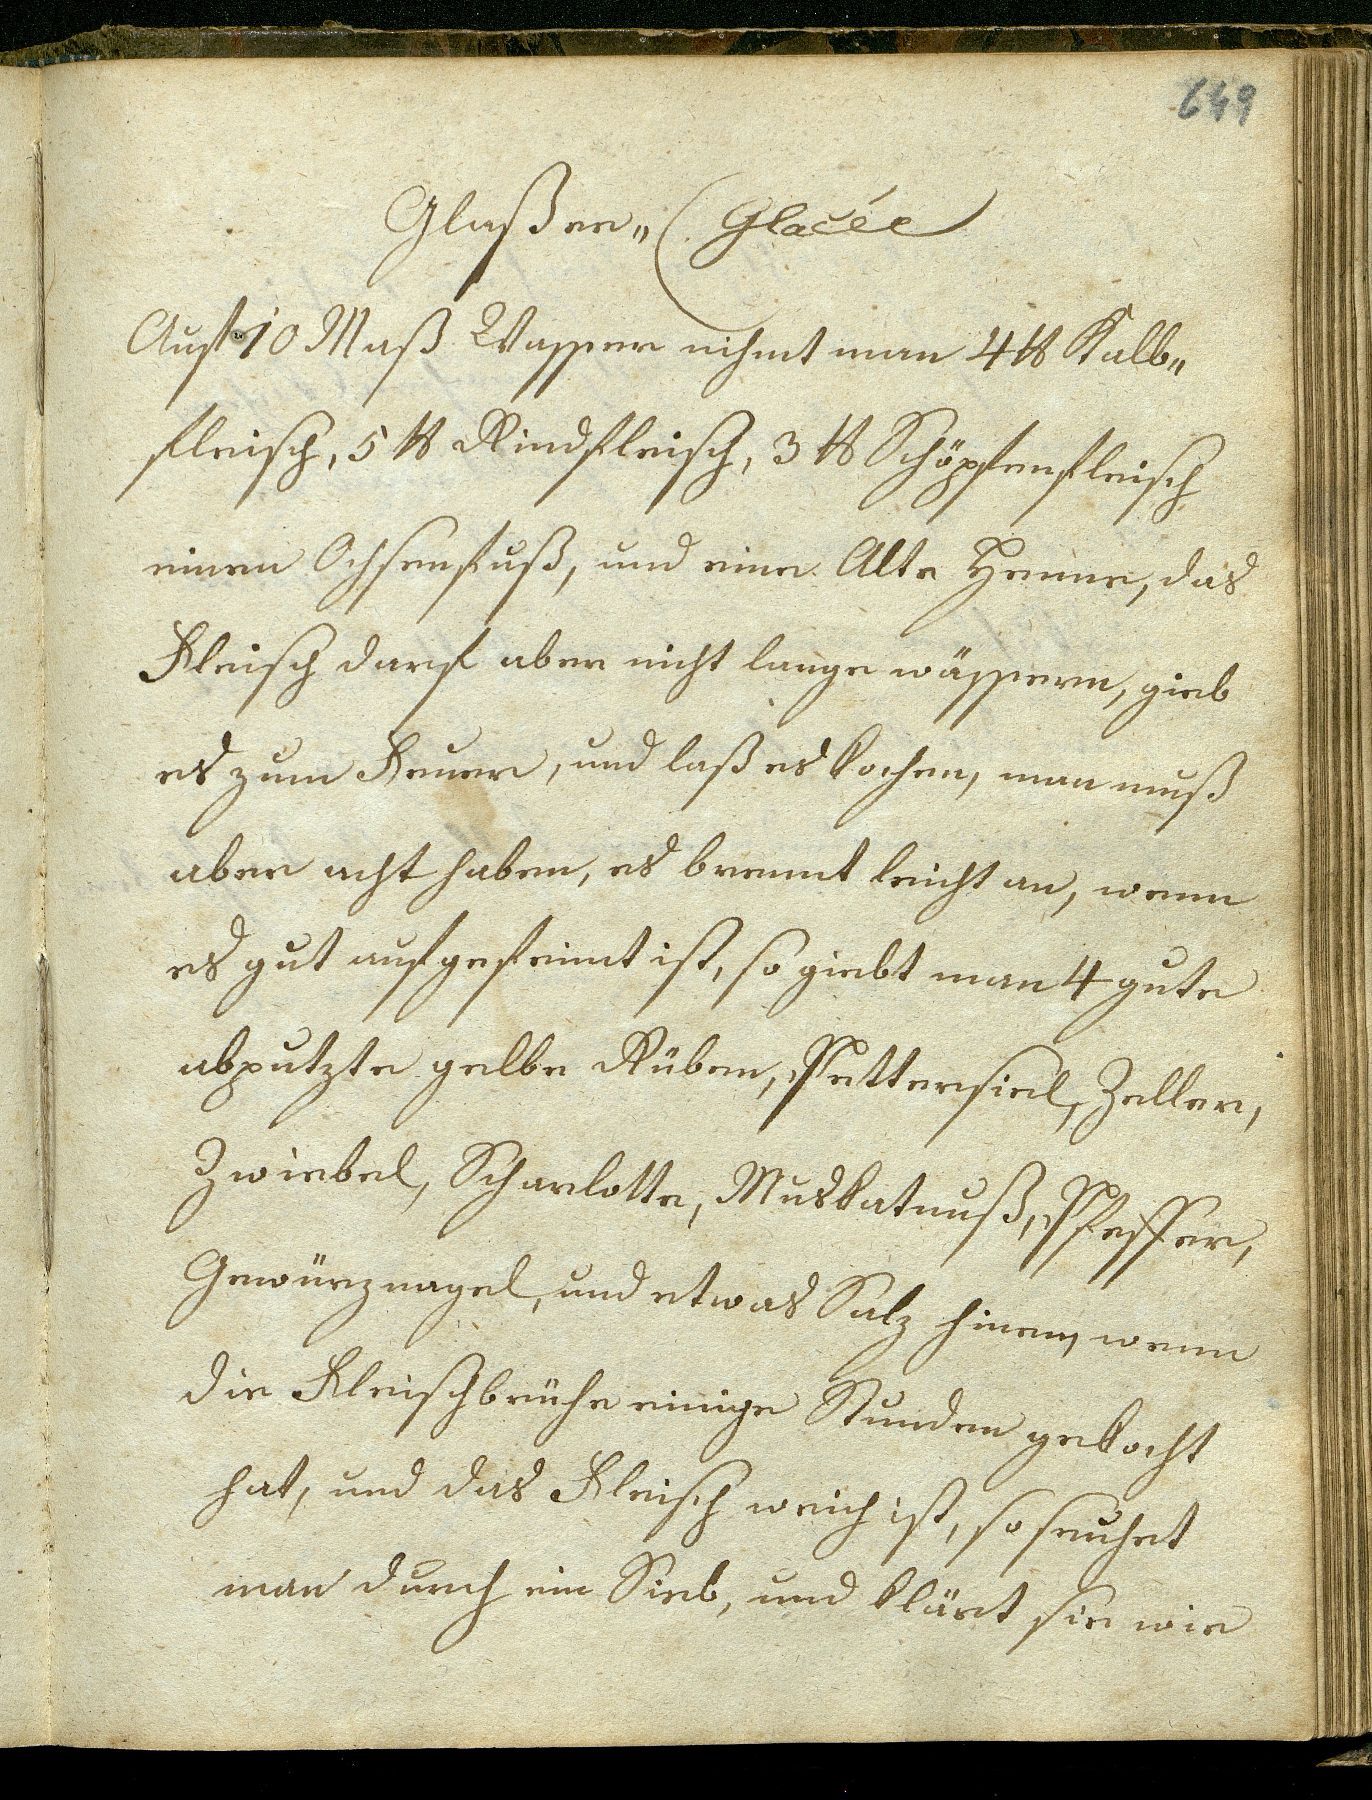 649
Glaßee„ (Glacée
Auf 10 Maß Wasser nihmt man 4 ℔ Kalb„
fleisch, 5 ℔ Rindfleisch, 3 ℔ Schöpfenfleisch
einen Ochsenfuß, und eine Alte Henne, das
Fleisch darf aber nicht lange wässern, gieb
es zum Feuer, und laß es kochen, man muß
aber acht haben, es brennt leicht an, wenn
es gut ausgefeimt ist, so giebt man 4 gute
abputzte gelbe Rüben, Pettersiel, Zeller,
Zwiebel, Scharlotte, Muskatnuß, Pfeffer,
Gewürznagel, und etwas Salz hinein, wenn
die Fleischbrühe einige Stunden gekocht
hat, und das Fleisch weich ist, so seuhet
man durch ein Sieb, und klärt sie wie